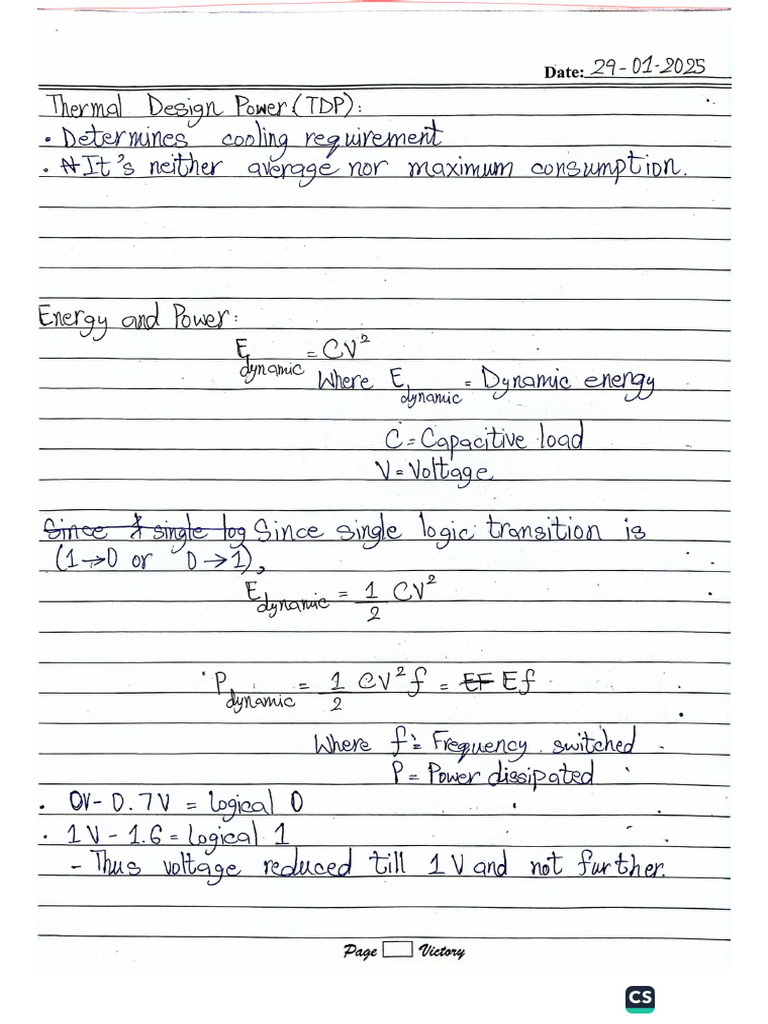 Date: 29-01-2025
Thermal Design Power (TDP):
• Determines cooling requirement
• It's neither average nor maximum consumption.
Energy and Power:
E dynamic = CV²
Where E dynamic = Dynamic energy
C = Capacitive load
V = Voltage
Since A single log Since single logic transition is
(1→0 or 0→1),
E dynamic = 1/2 CV²
P dynamic = 1/2 CV²f = EF Ef
Where f = Frequency switched
P = Power dissipated
• 0V - 0.7V = logical 0
• 1V - 1.6 = logical 1
- Thus voltage reduced till 1V and not further.
Page Victory
CS